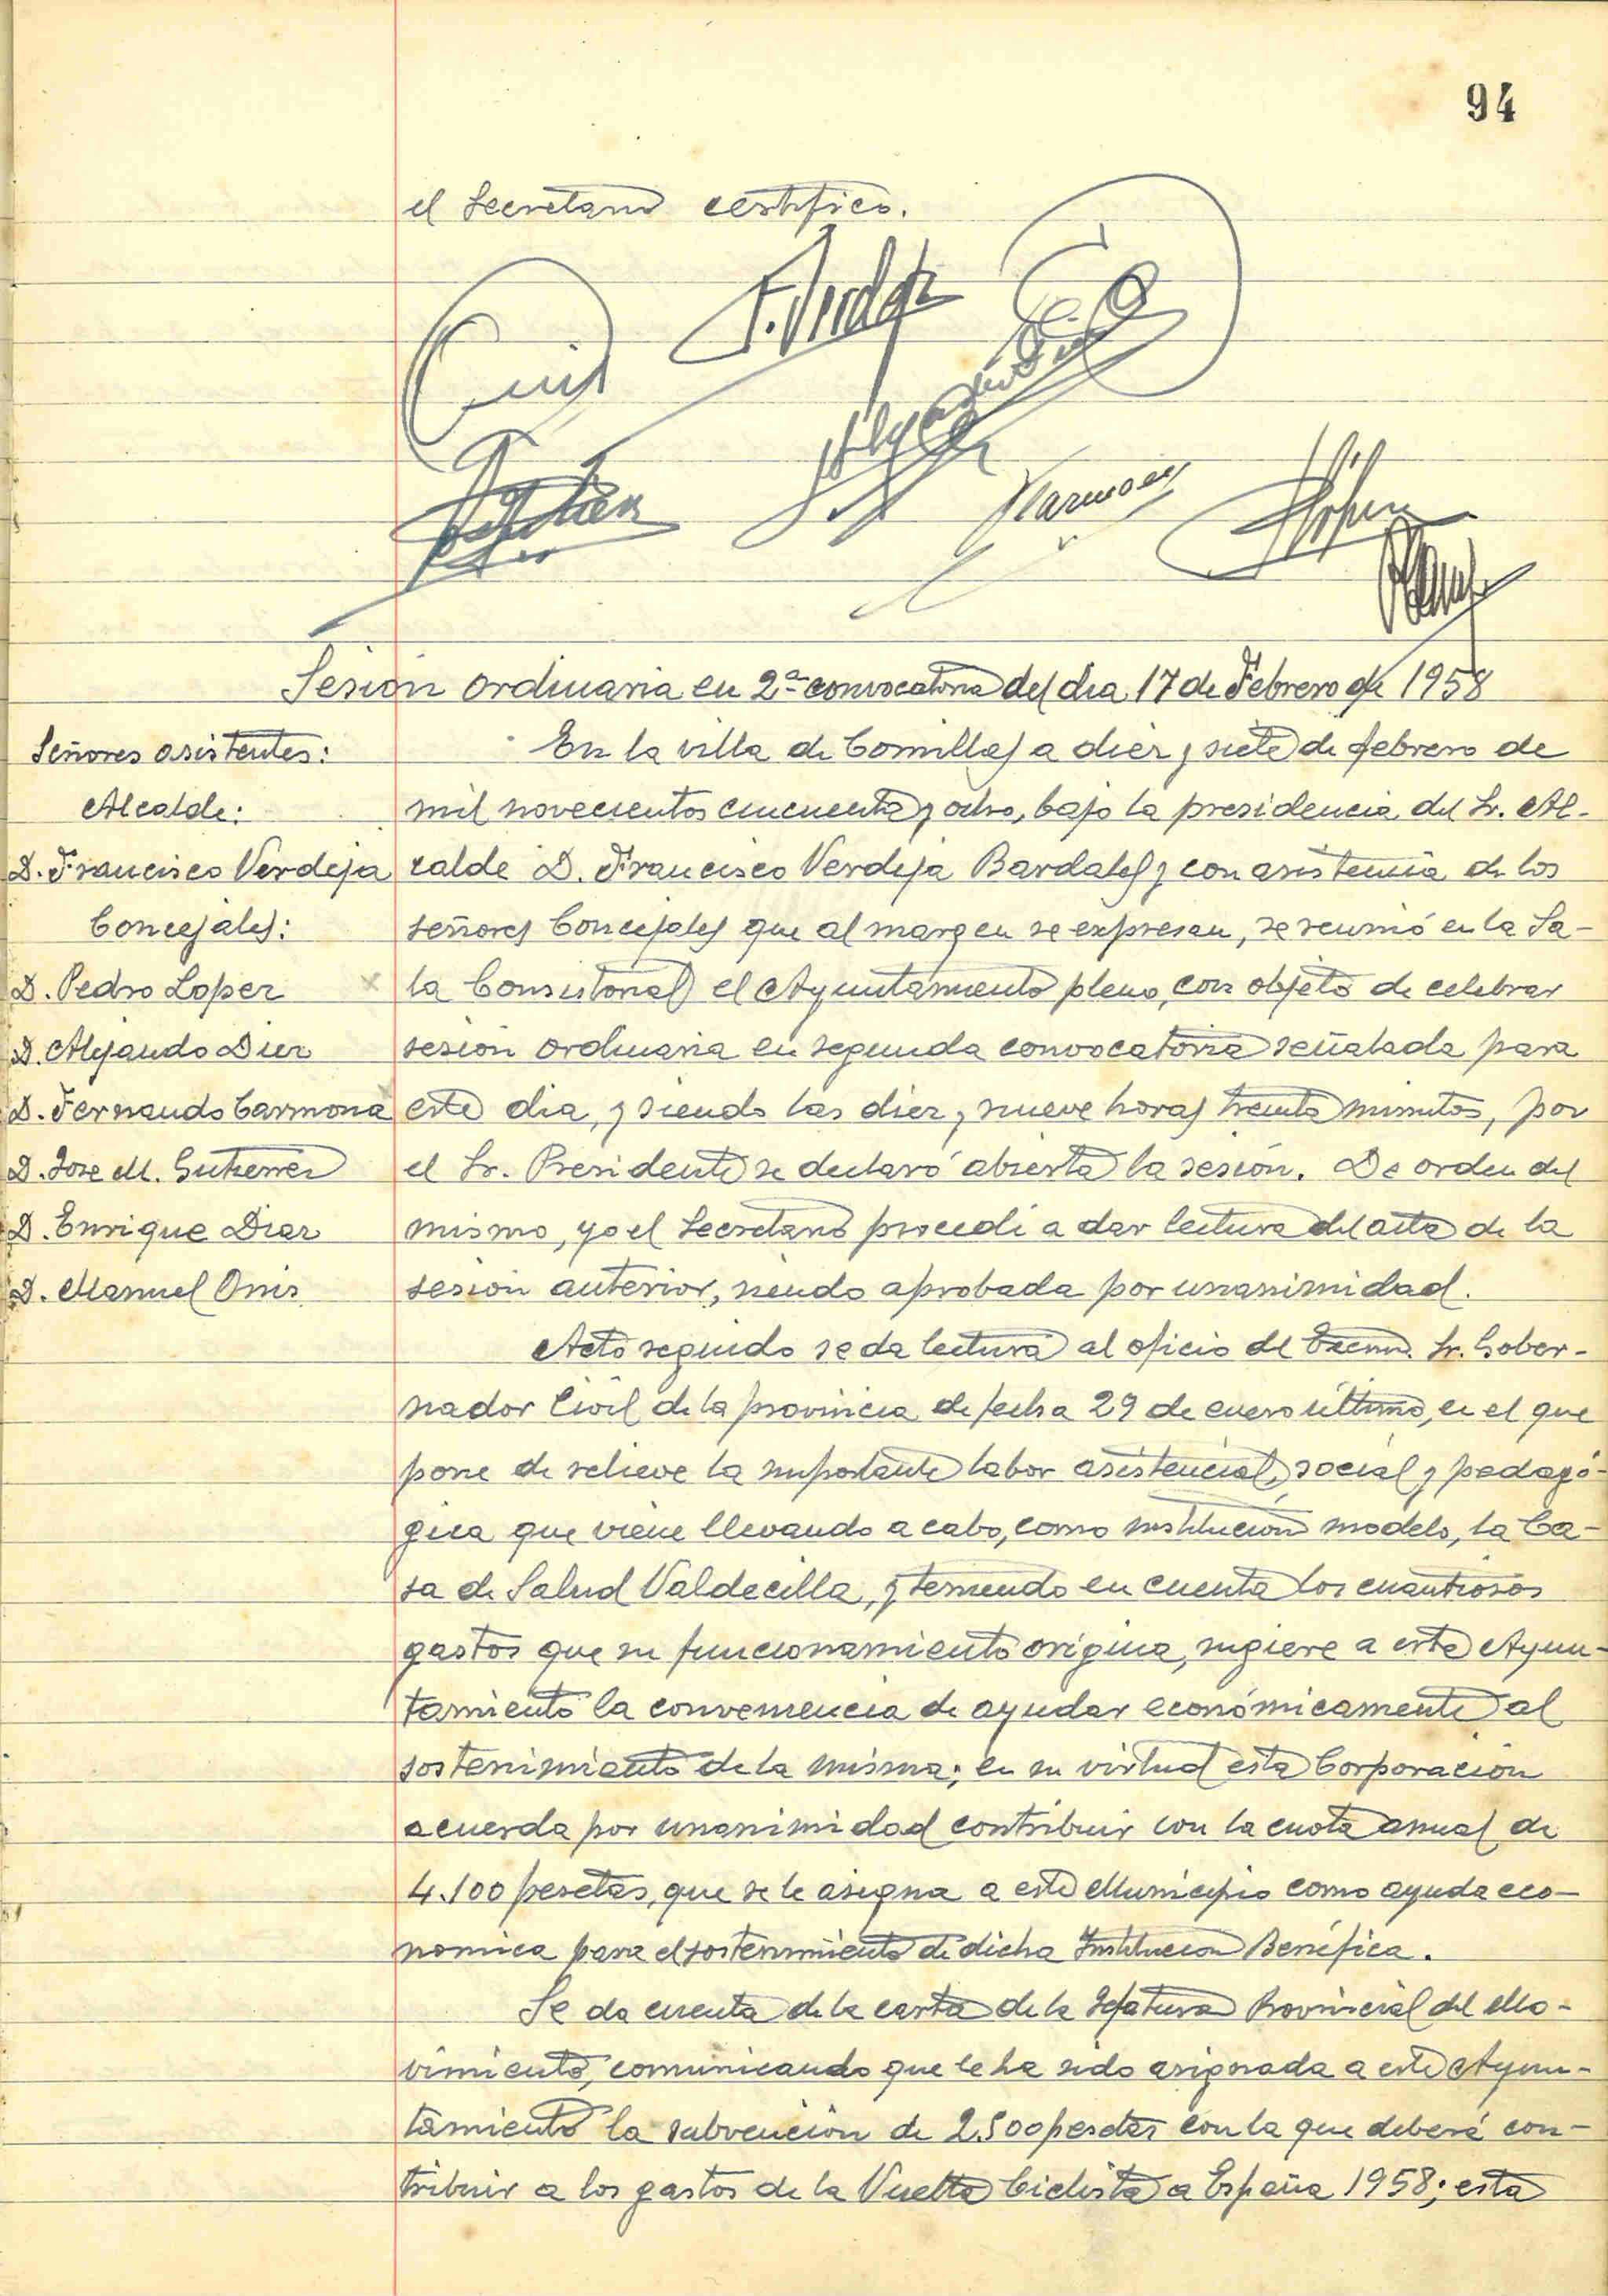 94
el Secretario certifico.
F. Verdeja
Carmona
PLópez
Sesion ordinaria en 2ª convocatoria del dia 17 de Febrero de 1958
Señores asistentes:
Alcalde:
D. Francisco Verdeja
Concejales:
D. Pedro Lopez
D. Alejando Diez
D. Fernando Carmona
D. Jose M. Gutierrez
D. Enrique Diaz
D. Manuel Onis
En la villa de Comillas a diez y siete de febrero de
mil novecientos cincuenta y ocho, bajo la presidencia del Sr. Al-
calde D. Francisco Verdeja Bardales y con asistencia de los
señores Concejales que al margen se expresan, se reunió en la Sa-
la Consistorial el Ayuntamiento pleno, con objeto de celebrar
sesion ordinaria en segunda convocatoria señalada para
este dia, y siendo las diez y nueve horas treinta minutos, por
el Sr. Presidente se declaró abierta la sesión. De orden del
mismo, yo el Secretario procedi a dar lectura del acta de la
sesion anterior, siendo aprobada por unanimidad.
Acto seguido se da lectura al oficio del Excmo. Sr. Gober-
nador Civil de la provincia de fecha 29 de enero último, en el que
pone de relieve la importante labor asistencial, social y pedagó-
gica que viene llevando a cabo, como institución modelo, la Ca-
sa de Salud Valdecilla, y teniendo en cuenta los cuantiosos
gastos que su funcionamiento origina, sugiere a este Ayun-
tamiento la conveniencia de ayudar económicamente al
sostenimiento de la misma; en su virtud esta Corporacion
acuerda por unanimidad contribuir con la cuota anual de
4.100 pesetas, que se le asigna a este Municipio como ayuda eco-
nomica para el sostenimiento de dicha Institucion Benéfica.
Se da cuenta de la carta de la Jefatura Provincial del Mo-
vimiento, comunicando que le ha sido asignada a este Ayun-
tamiento la subvención de 2.500 pesetas con la que deberá con-
tribuir a los gastos de la Vuelta Ciclista a España 1958; esta